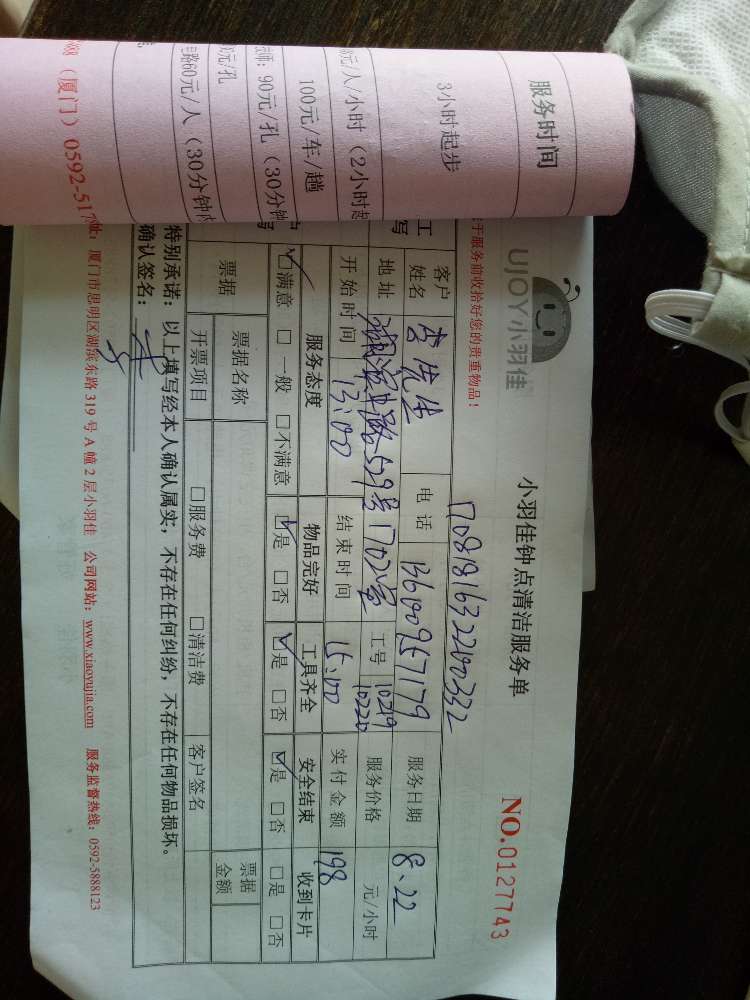 服务时间
3小时起步
元/人/小时（2小时起
100元/车/趟
90元/孔（30分钟
元/孔
60元/人（30分钟内
（厦门）0592-517
UJOY小羽佳
小羽佳钟点清洁服务单
NO.0127743
于服务前收拾好您的贵重物品！
1708181632200332
客户姓名 李先生 电话 13600957179 服务日期 8.22
地址 529号1702室 工号 10219 10220 服务价格 元/小时
开始时间 13:00 结束时间 15:00 实付金额 198
服务态度 物品完好 工具齐全 安全结束 收到卡片
☑满意 □一般 □不满意 ☑是 □否 ☑是 □否 ☑是 □否 □是 □否
票据 票据名称 票据金额
开票项目 □服务费 □清洁费 客户签名
特别承诺：以上填写经本人确认属实，不存在任何纠纷，不存在任何物品损坏。
确认签名：
址：厦门市思明区湖滨东路319号A幢2层小羽佳 公司网站：www.xiaoyujia.com 服务监督热线：0592-5888123